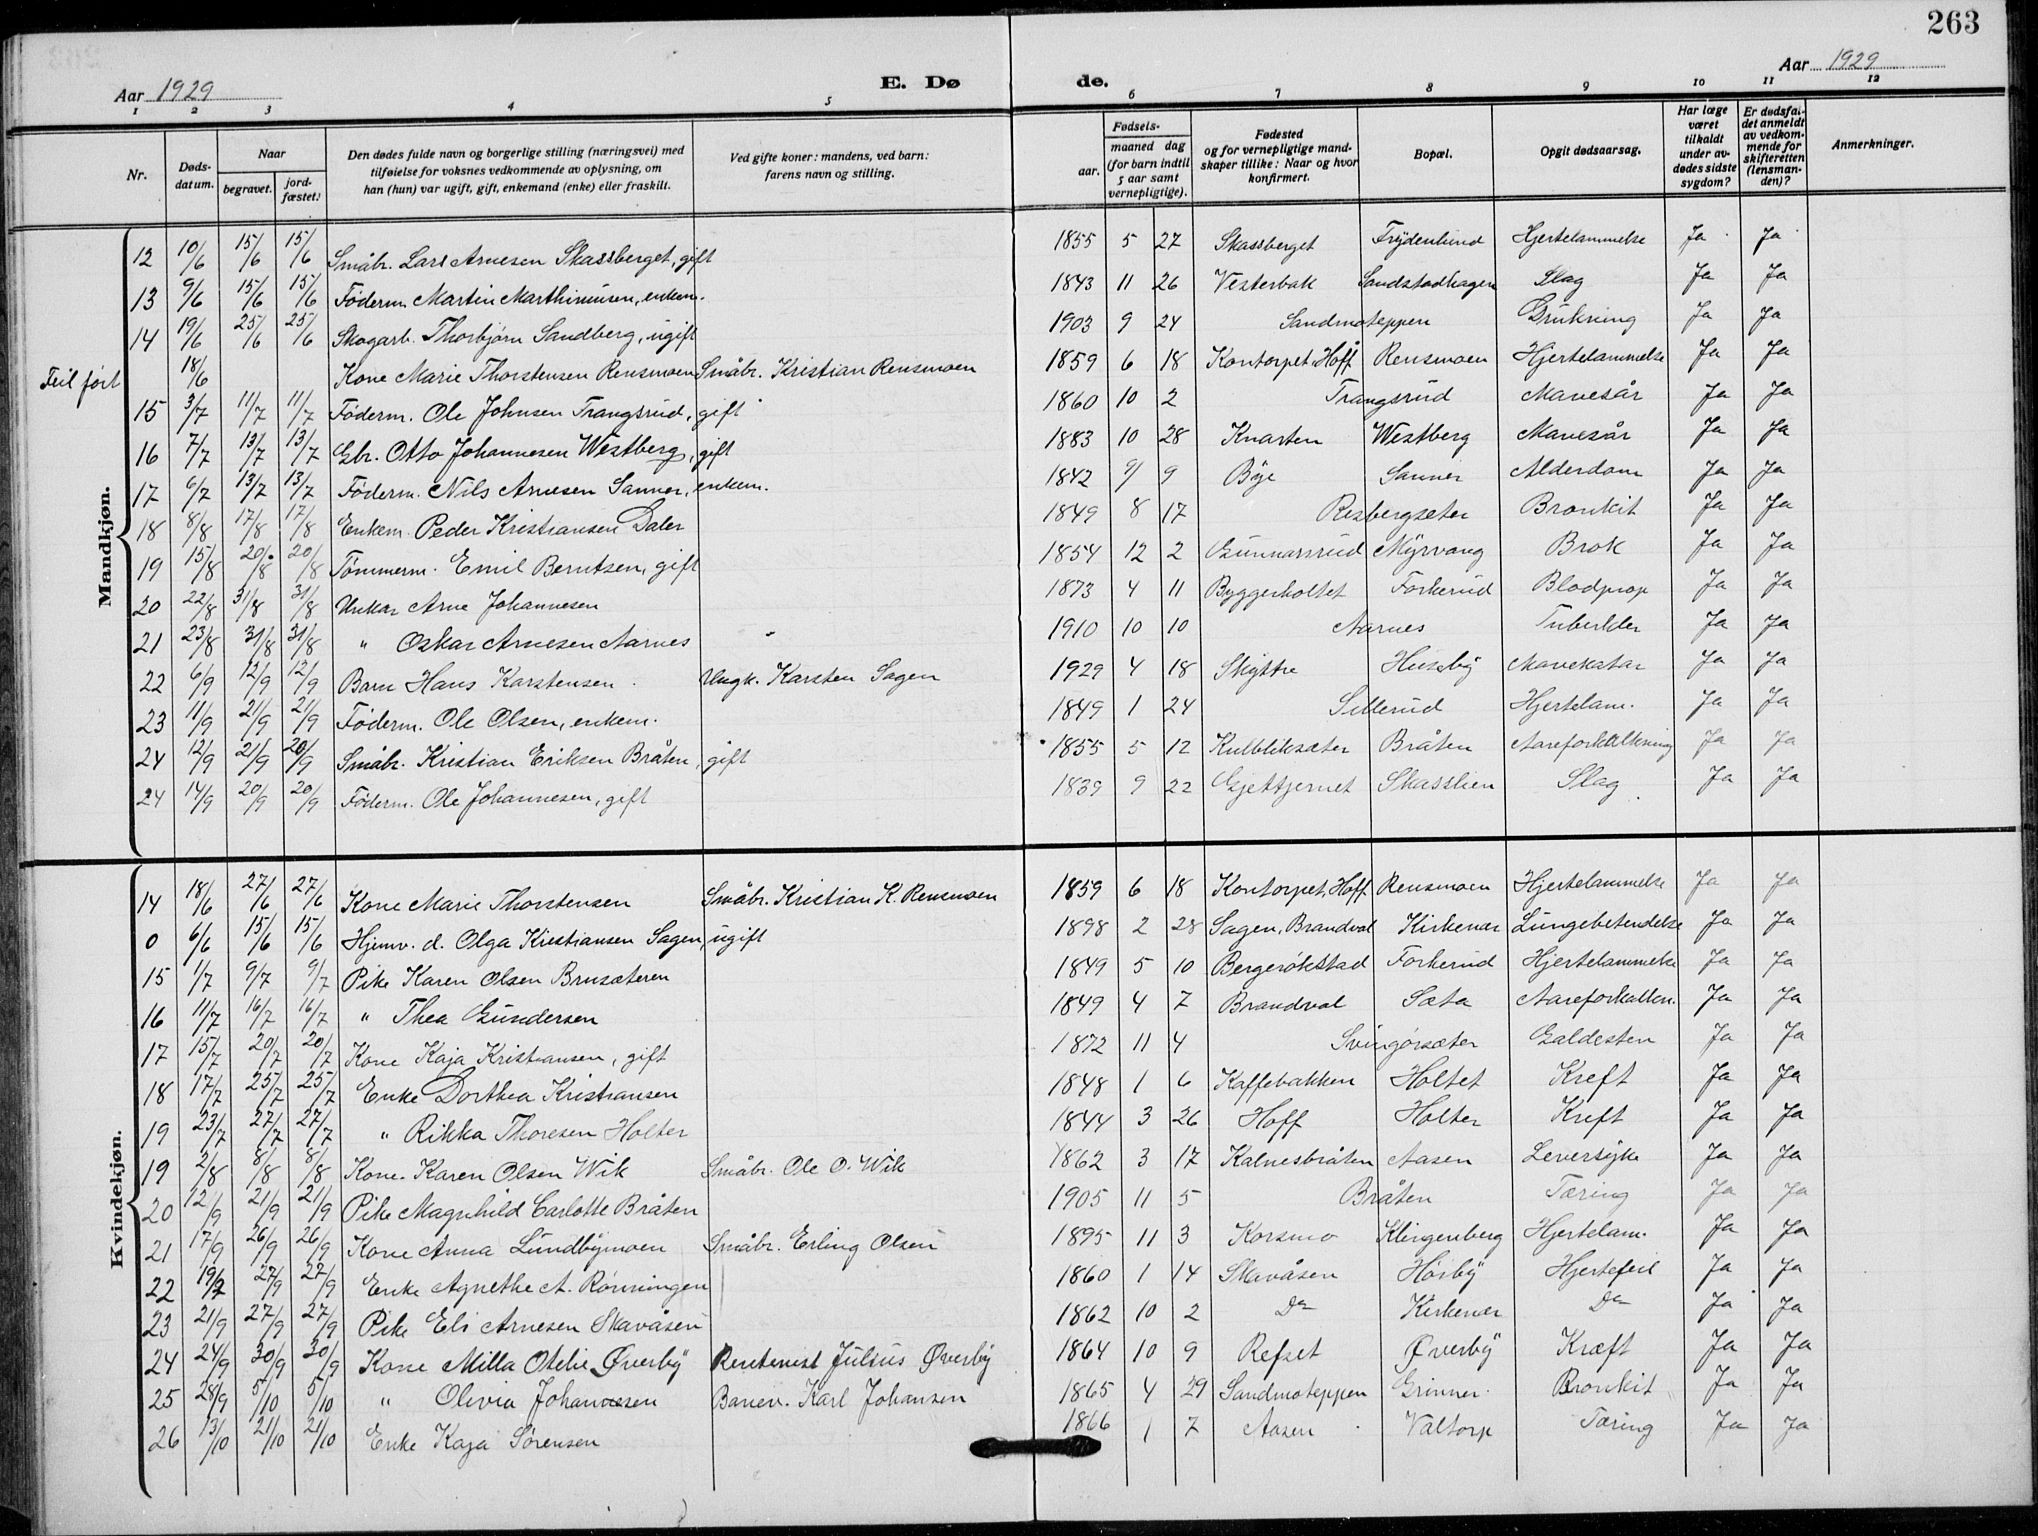 263
Aar 1929 E. Dø de. Aar 1929
1 2 3 4 5 6 7 8 9 10 11 12
Nr. Dødsdatum. Naar begravet. jordfæstet. Den dødes fulde navn og borgerlige stilling (næringsvei) med tilføielse for voksnes vedkommende av oplysning, om han (hun) var ugift, gift, enkemand (enke) eller fraskilt. Ved gifte koner: mandens, ved barn: farens navn og stilling. Fødsels- aar. maaned dag (for barn indtil 5 aar samt vernepligtige). Fødested og for vernepligtige mandskaper tillike: Naar og hvor konfirmert. Bopæl. Opgit dødsaarsag. Har læge været tilkaldt under avdødes sidste sygdom? Er dødsfaldet anmeldt av vedkommende for skifteretten (lensmanden)? Anmerkninger.
Mandkjøn.
12 10/6 15/6 15/6 Småbr. Lars Arnesen Skassberget, gift 1855 5 27 Skassberget Frydenlund Hjertelammelse Ja Ja
13 9/6 15/6 15/6 Føderm. Martin Marthinusen, enkem. 1843 11 26 Vesterbak Sandstadhagen Slag Ja Ja
14 19/6 25/6 25/6 Skogarb. Thorbjørn Sandberg, ugift 1903 9 24 Sandmoteppen Drukning Ja Ja
Feil ført 18/6 Kone Marie Thorstensen Rensmoen Småbr. Kristian Rensmoen 1859 6 18 Kontorpet, Hoff Rensmoen Hjertelammelse Ja Ja
15 3/7 11/7 11/7 Føderm. Ole Johnsen Trangsrud, gift 1860 10 2 Trangsrud Mavesår Ja Ja
16 7/7 13/7 13/7 Gbr. Otto Johannesen Westberg, gift 1883 10 28 Knarten Westberg Mavesår Ja Ja
17 6/7 13/7 13/7 Føderm. Nils Arnesen Sanner, enkem. 1842 9 9 Bye Sanner Alderdom Ja Ja
18 8/8 17/8 17/8 Enkem. Peder Kristiansen Daler 1849 8 17 Risbergseter Bronkit Ja Ja
19 15/8 20/8 20/8 Tømmerm. Emil Berntsen, gift 1854 12 2 Gunnarsrud Myrvang Brok Ja Ja
20 22/8 31/8 31/8 Unkar Arne Johannesen 1873 4 11 Byggerholtet Forkerud Blodprop Ja Ja
21 23/8 31/8 31/8 " Oskar Arnesen Aarnes " 1910 10 10 Aarnes Tuberkler Ja Ja
22 6/9 12/9 12/9 Barn Hans Karstensen Ungk. Karsten Sagen 1929 4 18 Skyttre Huseby Mavekatar Ja Ja
23 11/9 21/9 21/9 Føderm. Ole Olsen, enkem. 1849 1 24 Sillerud Hjertelam. Ja Ja
24 12/9 21/9 20/9 Småbr. Kristian Eriksen Bråten, gift 1855 5 12 Kulbliksæter Bråten Aareforkalkning Ja Ja
24 14/9 20/9 20/9 Føderm. Ole Johannesen, gift 1839 9 22 Gjettjernet Skasslien Slag Ja Ja
Kvindekjøn.
14 18/6 27/6 27/6 Kone Marie Thorstensen Småbr. Kristian K. Rensmoen 1859 6 18 Kontorpet, Hoff Rensmoen Hjertelammelse Ja Ja
0 6/6 15/6 15/6 Hjemv. d. Olga Kristiansen Sagen, ugift 1898 2 28 Sagen, Brandval Kirkenær Lungebetendelse Ja Ja
15 1/7 9/7 9/7 Pike Karen Olsen Brusæteren 1849 5 10 Bergerøkstad Forkerud Hjertelammelse Ja Ja
16 11/7 16/7 16/7 " Thea Gundersen 1849 4 7 Brandval Sæta Aareforkalkn. Ja Ja
17 15/7 20/7 20/7 Kone Kaja Kristiansen, gift 1872 11 4 Svingørsæter Galdesten Ja Ja
18 17/7 25/7 25/7 Enke Dorthea Kristiansen 1848 1 6 Kaffebakken Holtet Kreft Ja Ja
19 23/7 27/7 27/7 " Rikka Thoresen Holter 1844 3 26 Hoff Holter Kreft Ja Ja
19 2/8 8/8 8/8 Kone. Karen Olsen Wik Småbr. Ole O. Wik 1862 3 17 Kalnesbråten Aasen Leversyke Ja Ja
20 12/9 21/9 21/9 Pike Magnhild Carlotte Bråten 1905 11 5 Bråten Tæring Ja Ja
21 17/9 26/9 26/9 Kone Anna Lundbymoen Småbr. Erling Olsen 1895 11 3 Korsmo Klingenberg Hjertelam. Ja Ja
22 19/9 27/9 27/9 Enke Agnethe A. Rønningen 1860 1 14 Skavåsen Hørby Hjertefeil Ja Ja
23 21/9 27/9 27/9 Pike Eli Arnesen Skavåsen 1862 10 2 Do Kirkenær Do Ja Ja
24 24/9 30/9 30/9 Kone Milla Otelie Øverby Rentenist Julius Øverby 1864 10 9 Refset Øverby Kræft Ja Ja
25 28/9 5/10 5/10 " Olivia Johannesen Banev. Karl Johansen 1865 4 29 Sandmoteppen Grinner Bronkit Ja Ja
26 13/10 21/10 21/10 Enke Kaja Sørensen 1866 1 7 Aasen Valtorp Tæring Ja Ja